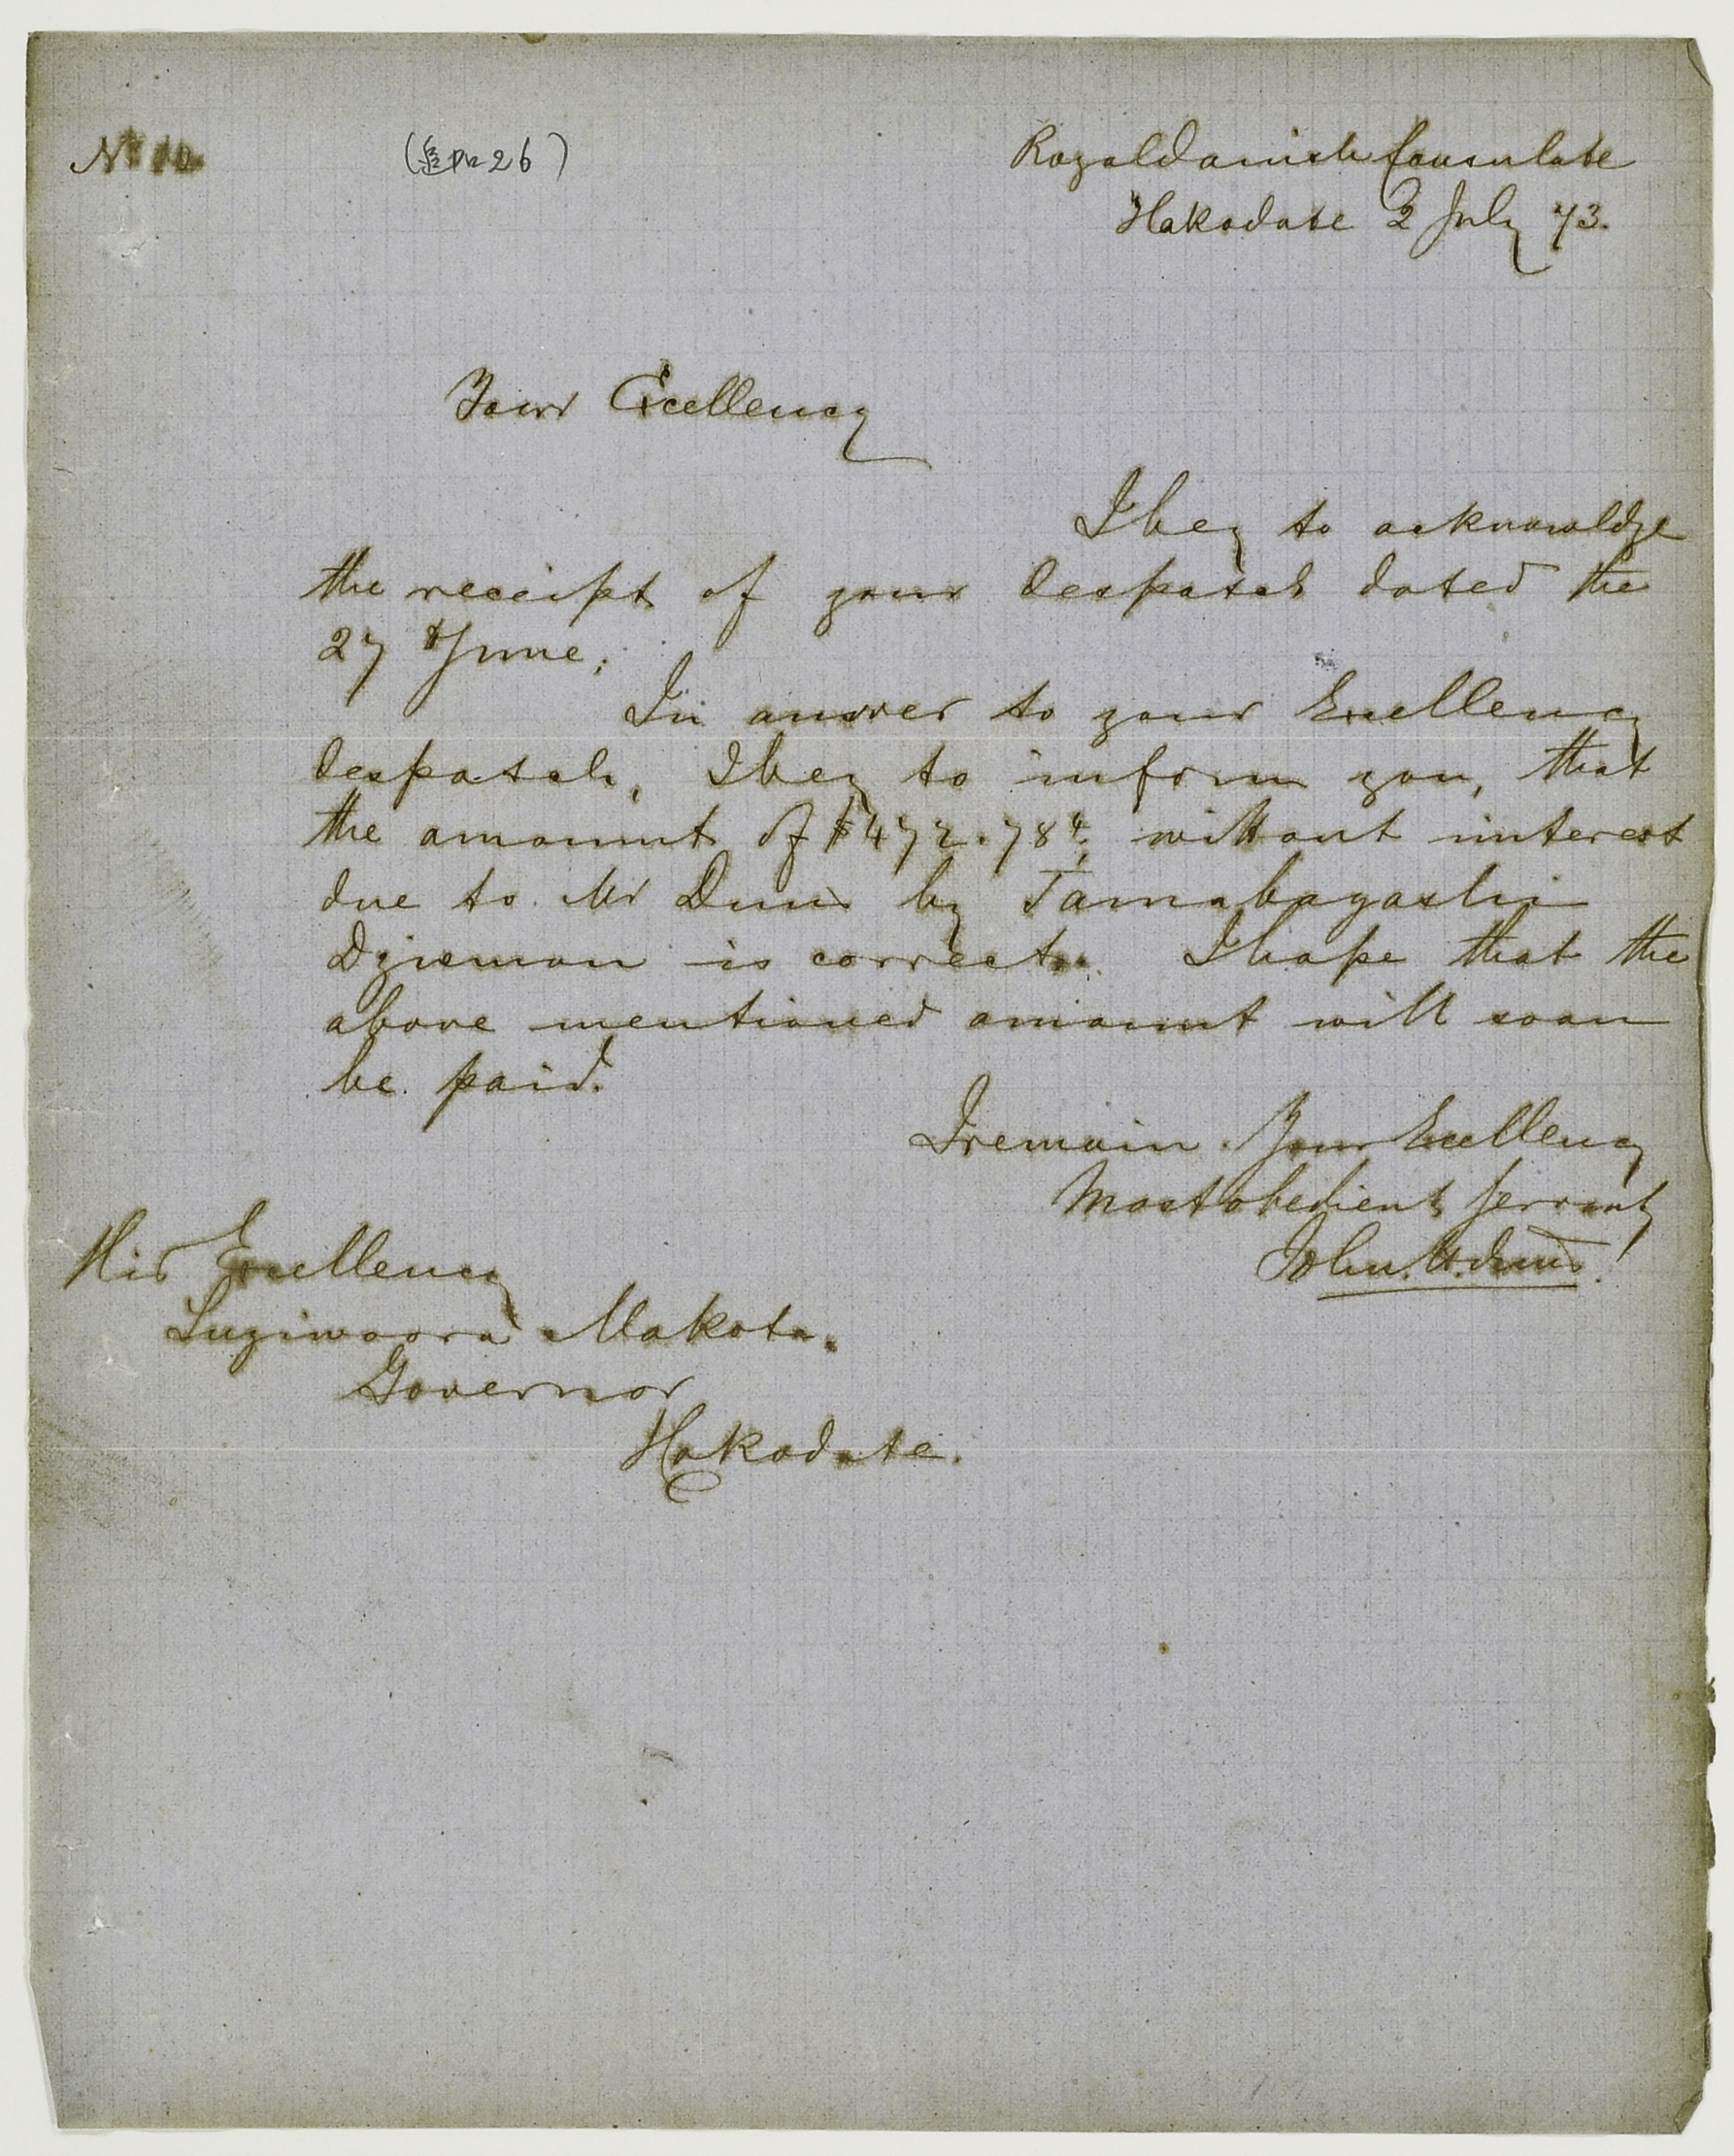 Nº 10
Royal Danish Consulate
Hakodate 2 July 73.
Your Excellency
I beg to acknowldge
the receipt of your Despatch dated the
27 June.
In answer to your Excellency
Despatch, I beg to inform you, that
the amount of $472.78 without interest
due to Mr Duus by Tamabayashi
is correct. I hope that the
above mentioned amount will soon
be paid.
I remain Your Excellency
Most obedient Servant
John. H. Duus.
His Excellency
Sugiwoora Makoto.
Governor
Hakodate.